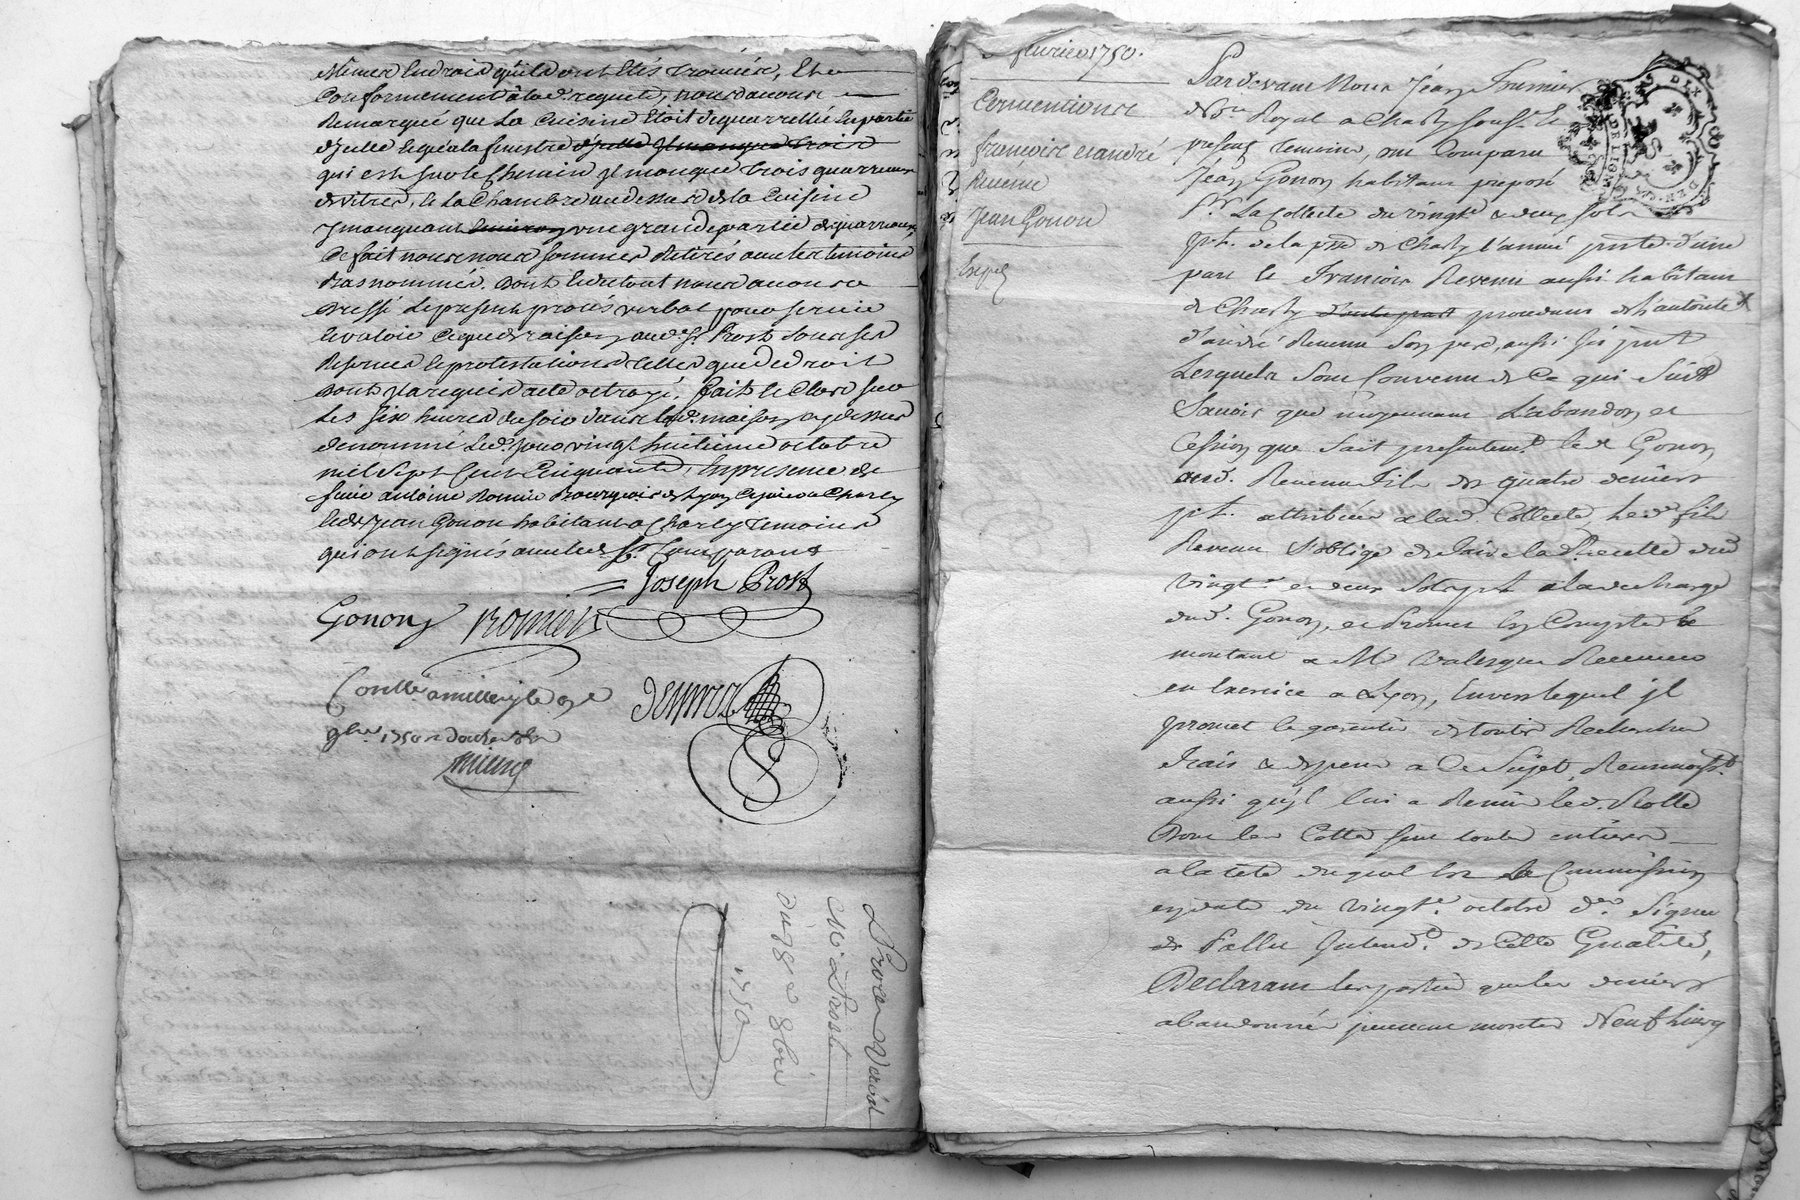 Mêmes Endroits qu'ils ont Etés trouvés, Et
Conformement à lad. requete, nous avons
Remarqué que La Cuisine Etoit dequarrellée En partie
qui est sur le Chemin Il manque trois quarreaux
de vitres, & la Chambre au dessus de la Cuisine
y manquant une grande partie de quarreaux,
De fait nous nous sommes Retirés avec les temoins
bas nommés. Dont Et du tout nous avons
Dressé Le present procés verbal pour servir
Et valoir Ce que de raison aud. Sr. Prost sous ses
Reserves & protestations telles que de droit
Dont Il a requis acte octroyé. Fait & Clos sur
Les Six heures du soir dans lad. maison cy dessus
denommé Led. jour vingt huitieme octobre
mil Sept Cent Cinquante, En presence de
Sieur antoine Romier Bourgeois de Lyon
& de Jean Gonon habitant a Charly temoins
qui ont signés avec led. Sr. Comparant
Joseph Prost
Gonon Romier
Conllé a millery le
9bre 1750 R douze sols
Procés Verbal
Mr. Prost
du 28e 8bre
1750
fevrier 1750.
Conventions
francois et andré
Revenu
Jean Gonon
Exped
Pardevant Nous Jean Fournier
No.re Royal a Charly sousr. &
presents temoins, ont Comparu
Jean Gonon habitant preposé
Pr. La Collecte du vingte. & deux sols
pt. de la psse de Charly l'année pnte. d'une
part & Francois Revenu aussi habitant
de Charly d'autre part procedant de l'autorité
d'andré Revenu Son pere, aussi Icy pnt
Lesquels Sont Convenus de Ce qui Suit
Savoir que moyennant L'abandon et
Cession que fait presentemt. led. Gonon
aud. Revenu Fils des quatre deniers
pt. attribués a lad. Collecte, led. fils
Revenu S'oblige de faire lad. Recette dud.
vingte. et deux Sols pt. a la decharge
dud. Gonon, et d'en Compter le
montant a Mr.
en Exercice a Lyon, Envers lequel Il
promet le garentir de toutes Recherches
frais & depens a Ce Sujet, Reconnoisst.
aussi qu'Il lui a Remis led. Rolle
Dont les Cottes sont toutes entieres
a la tete duquel Est La Commission
en date du vingte. octobre der. Signée
de Pallu Intendt. de Cette Generalité,
Declarant les parties que les deniers
abandonnés peuvent monter